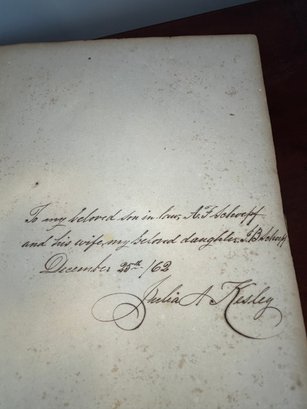 To my beloved son in law, A. F. Schoepf
and his wife, my beloved daughter, J. B. Schoepf
December 25th /62
Julia A Kesley